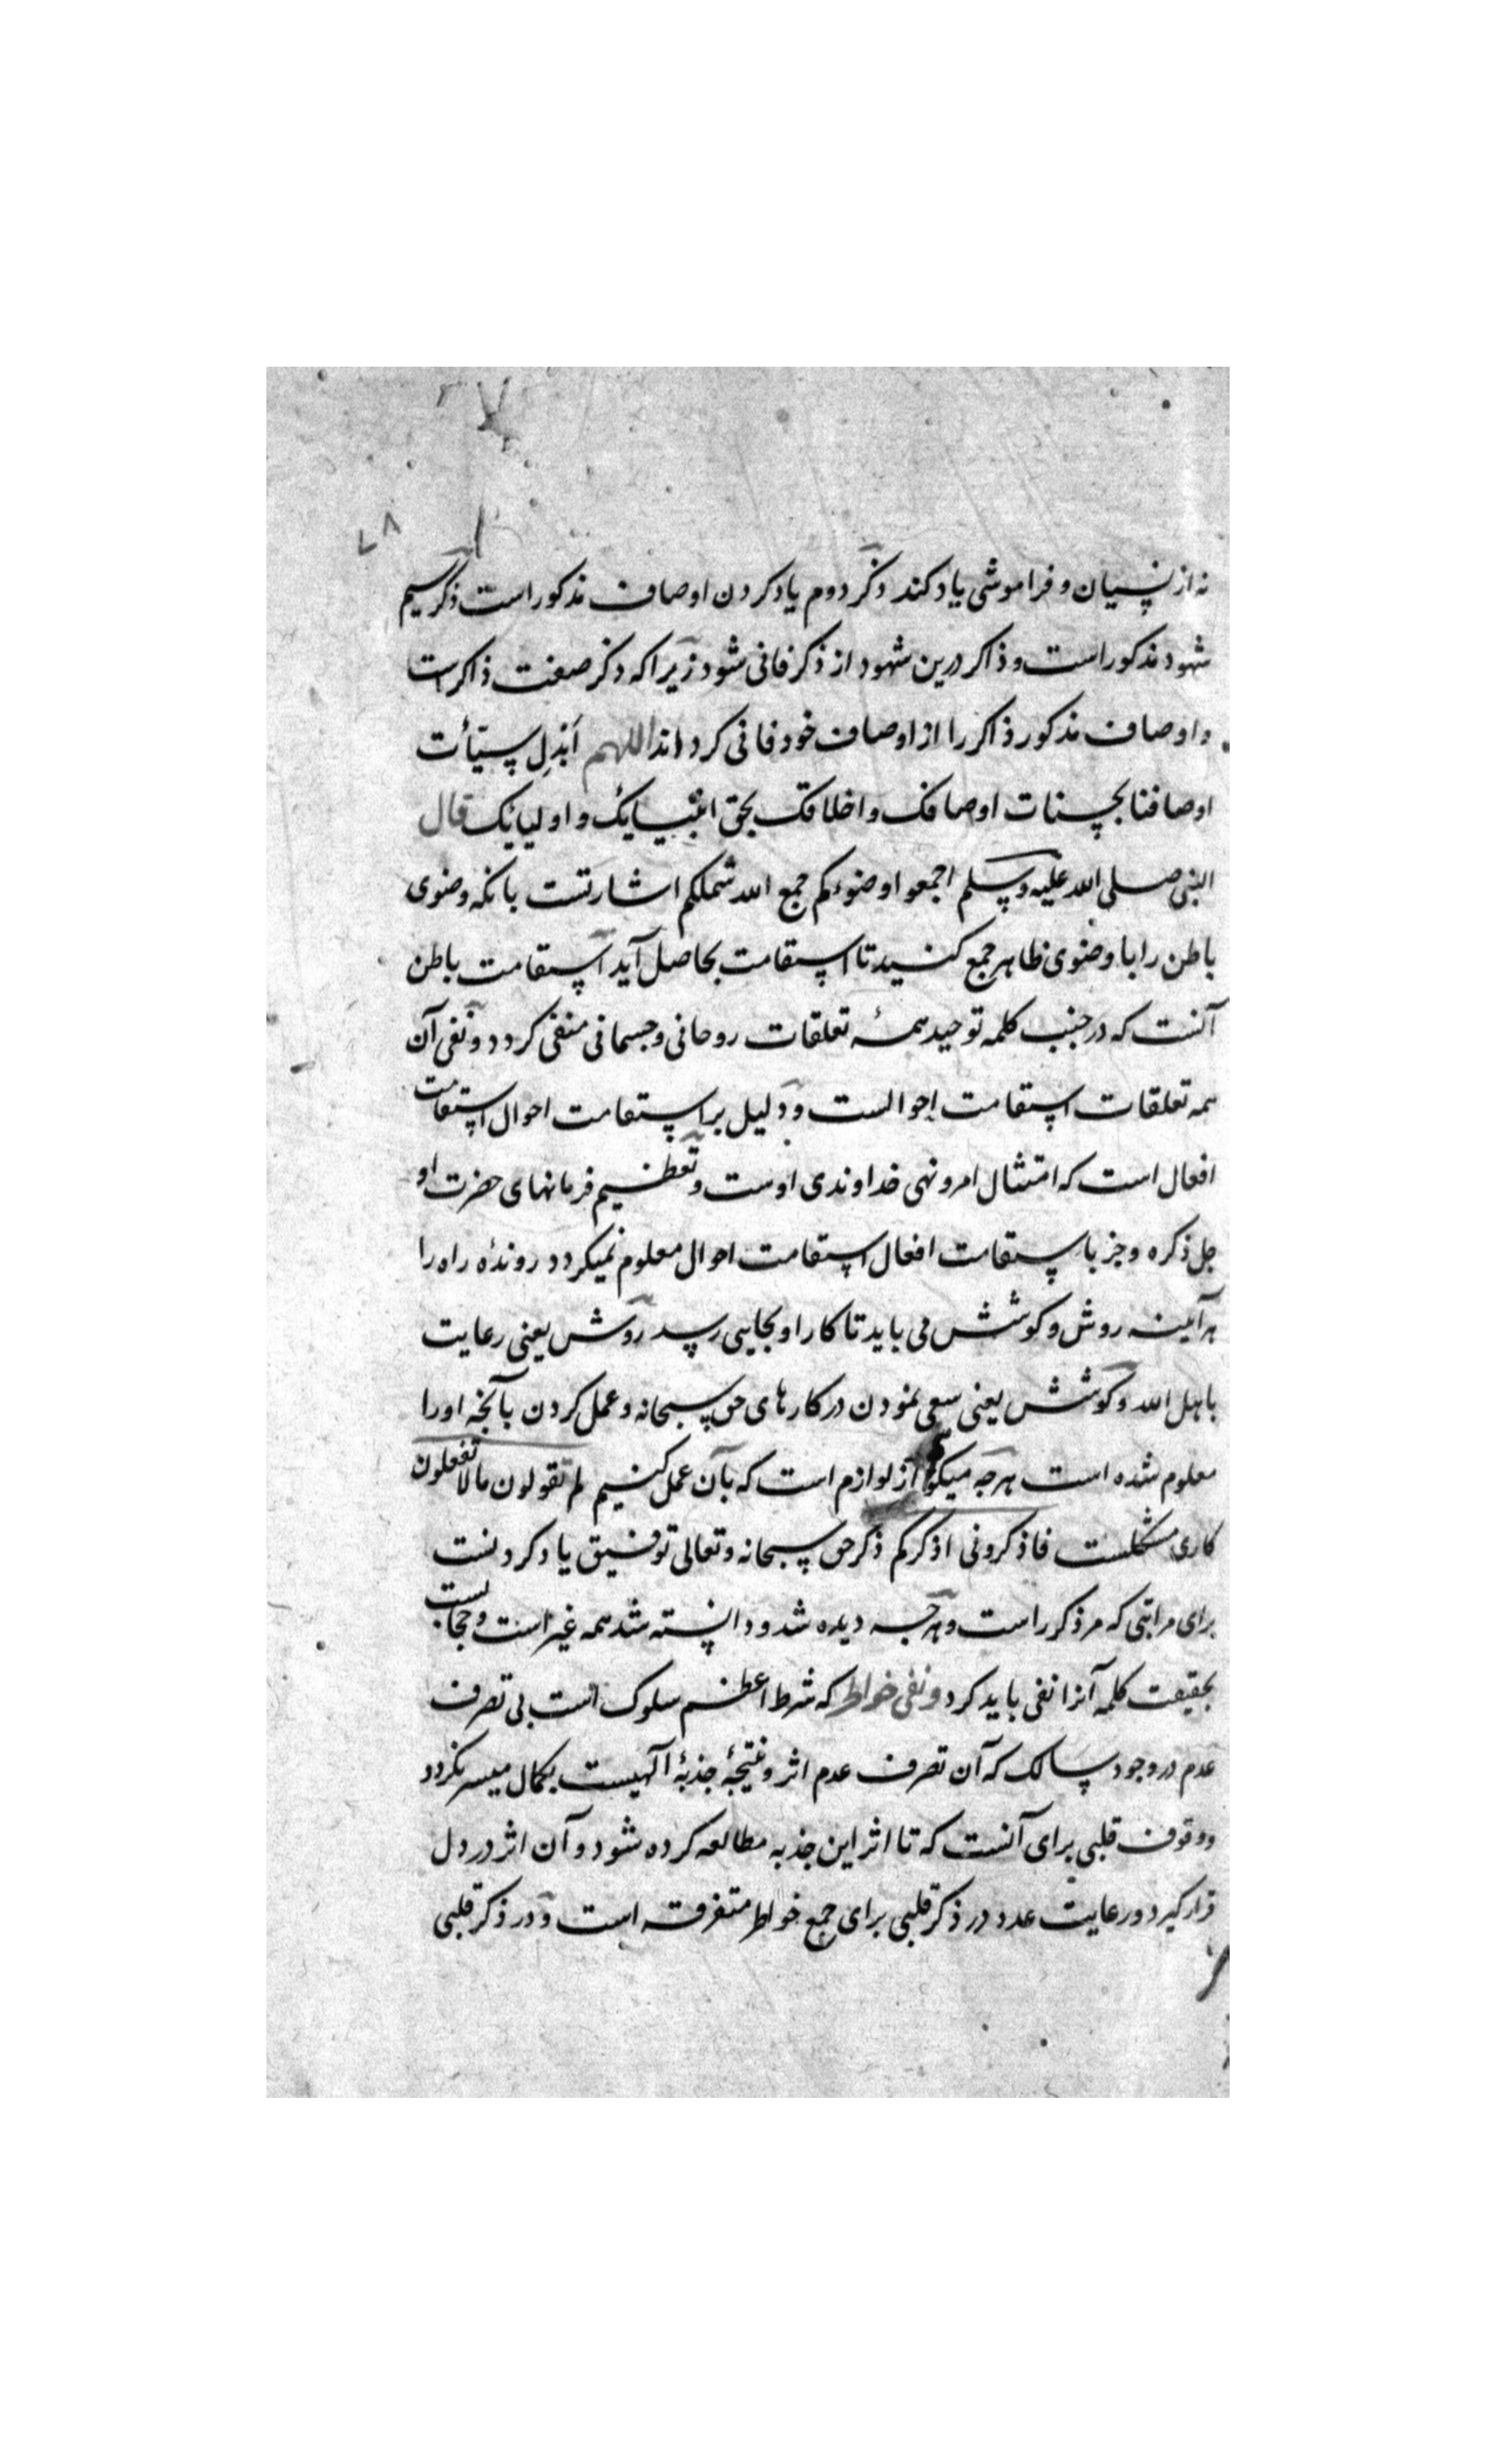 ۷۸
نه از نسیان و فراموشی یاد کند ذکر دوم یاد کردن اوصاف مذکور است ذکر سیم
شهود مذکور است و ذاکر درین شهود از ذکر فانی شود زیرا که ذکر صفت ذاکرست
و اوصاف مذکور ذاکر را از اوصاف خود فانی کرداند اللهم ابدل سیّأت
اوصافنا بحسنات اوصافک و اخلاقک بحق انبیایک و اولیایک قال
النبی صلی الله علیه وسلم اجمعوا وضوءکم جمع الله شملکم اشارتست بانکه وضوی
باطن را با وضوی ظاهر جمع کنید تا استقامت بحاصل آید استقامت باطن
آنست که در جنب کلمه توحید همهٔ تعلقات روحانی و جسمانی منفی کردد و نفی آن
همه تعلقات استقامت احوالست و دلیل بر استقامت احوال استقامت
افعال است که امتثال امر و نهی خداوندی اوست و تعظیم فرمانهای حضرت او
جل ذکره و جز با ستقامت افعال استقامت احوال معلوم نمیکردد روندهٔ راه را
هرآینه روش و کوشش می باید تا کار او بجایی رسد روش یعنی رعایت
باهل الله و کوشش یعنی سعی نمودن در کارهای حق سبحانه و عمل کردن بآنجه اورا
معلوم شده است هرجه از لوازم است که بآن عمل کنیم لم تقولون مالا تفعلون
کاری مشکلست فاذکرونی اذکرکم ذکر حق سبحانه و تعالی توفیق یاد کردنست
برای مراتبی که مر ذکور است و هرجه دیده شد و دانسته شد همه غیر است و حجابست
بحقیقت کلمه آنرا نفی باید کرد و نفی خواطر که شرط اعظم سلوک است بی تصرف
عدم در وجود سالک که آن تصرف عدم اثر و نتیجهٔ جذبهٔ آلهیست بکمال میسر نکردد
و وقوف قلبی برای آنست که تا اثر این جذبه مطالعه کرده شود و آن اثر در دل
قرار کیرد و رعایت عدد در ذکر قلبی برای جمع خواطر متفرقه است و در ذکر قلبی